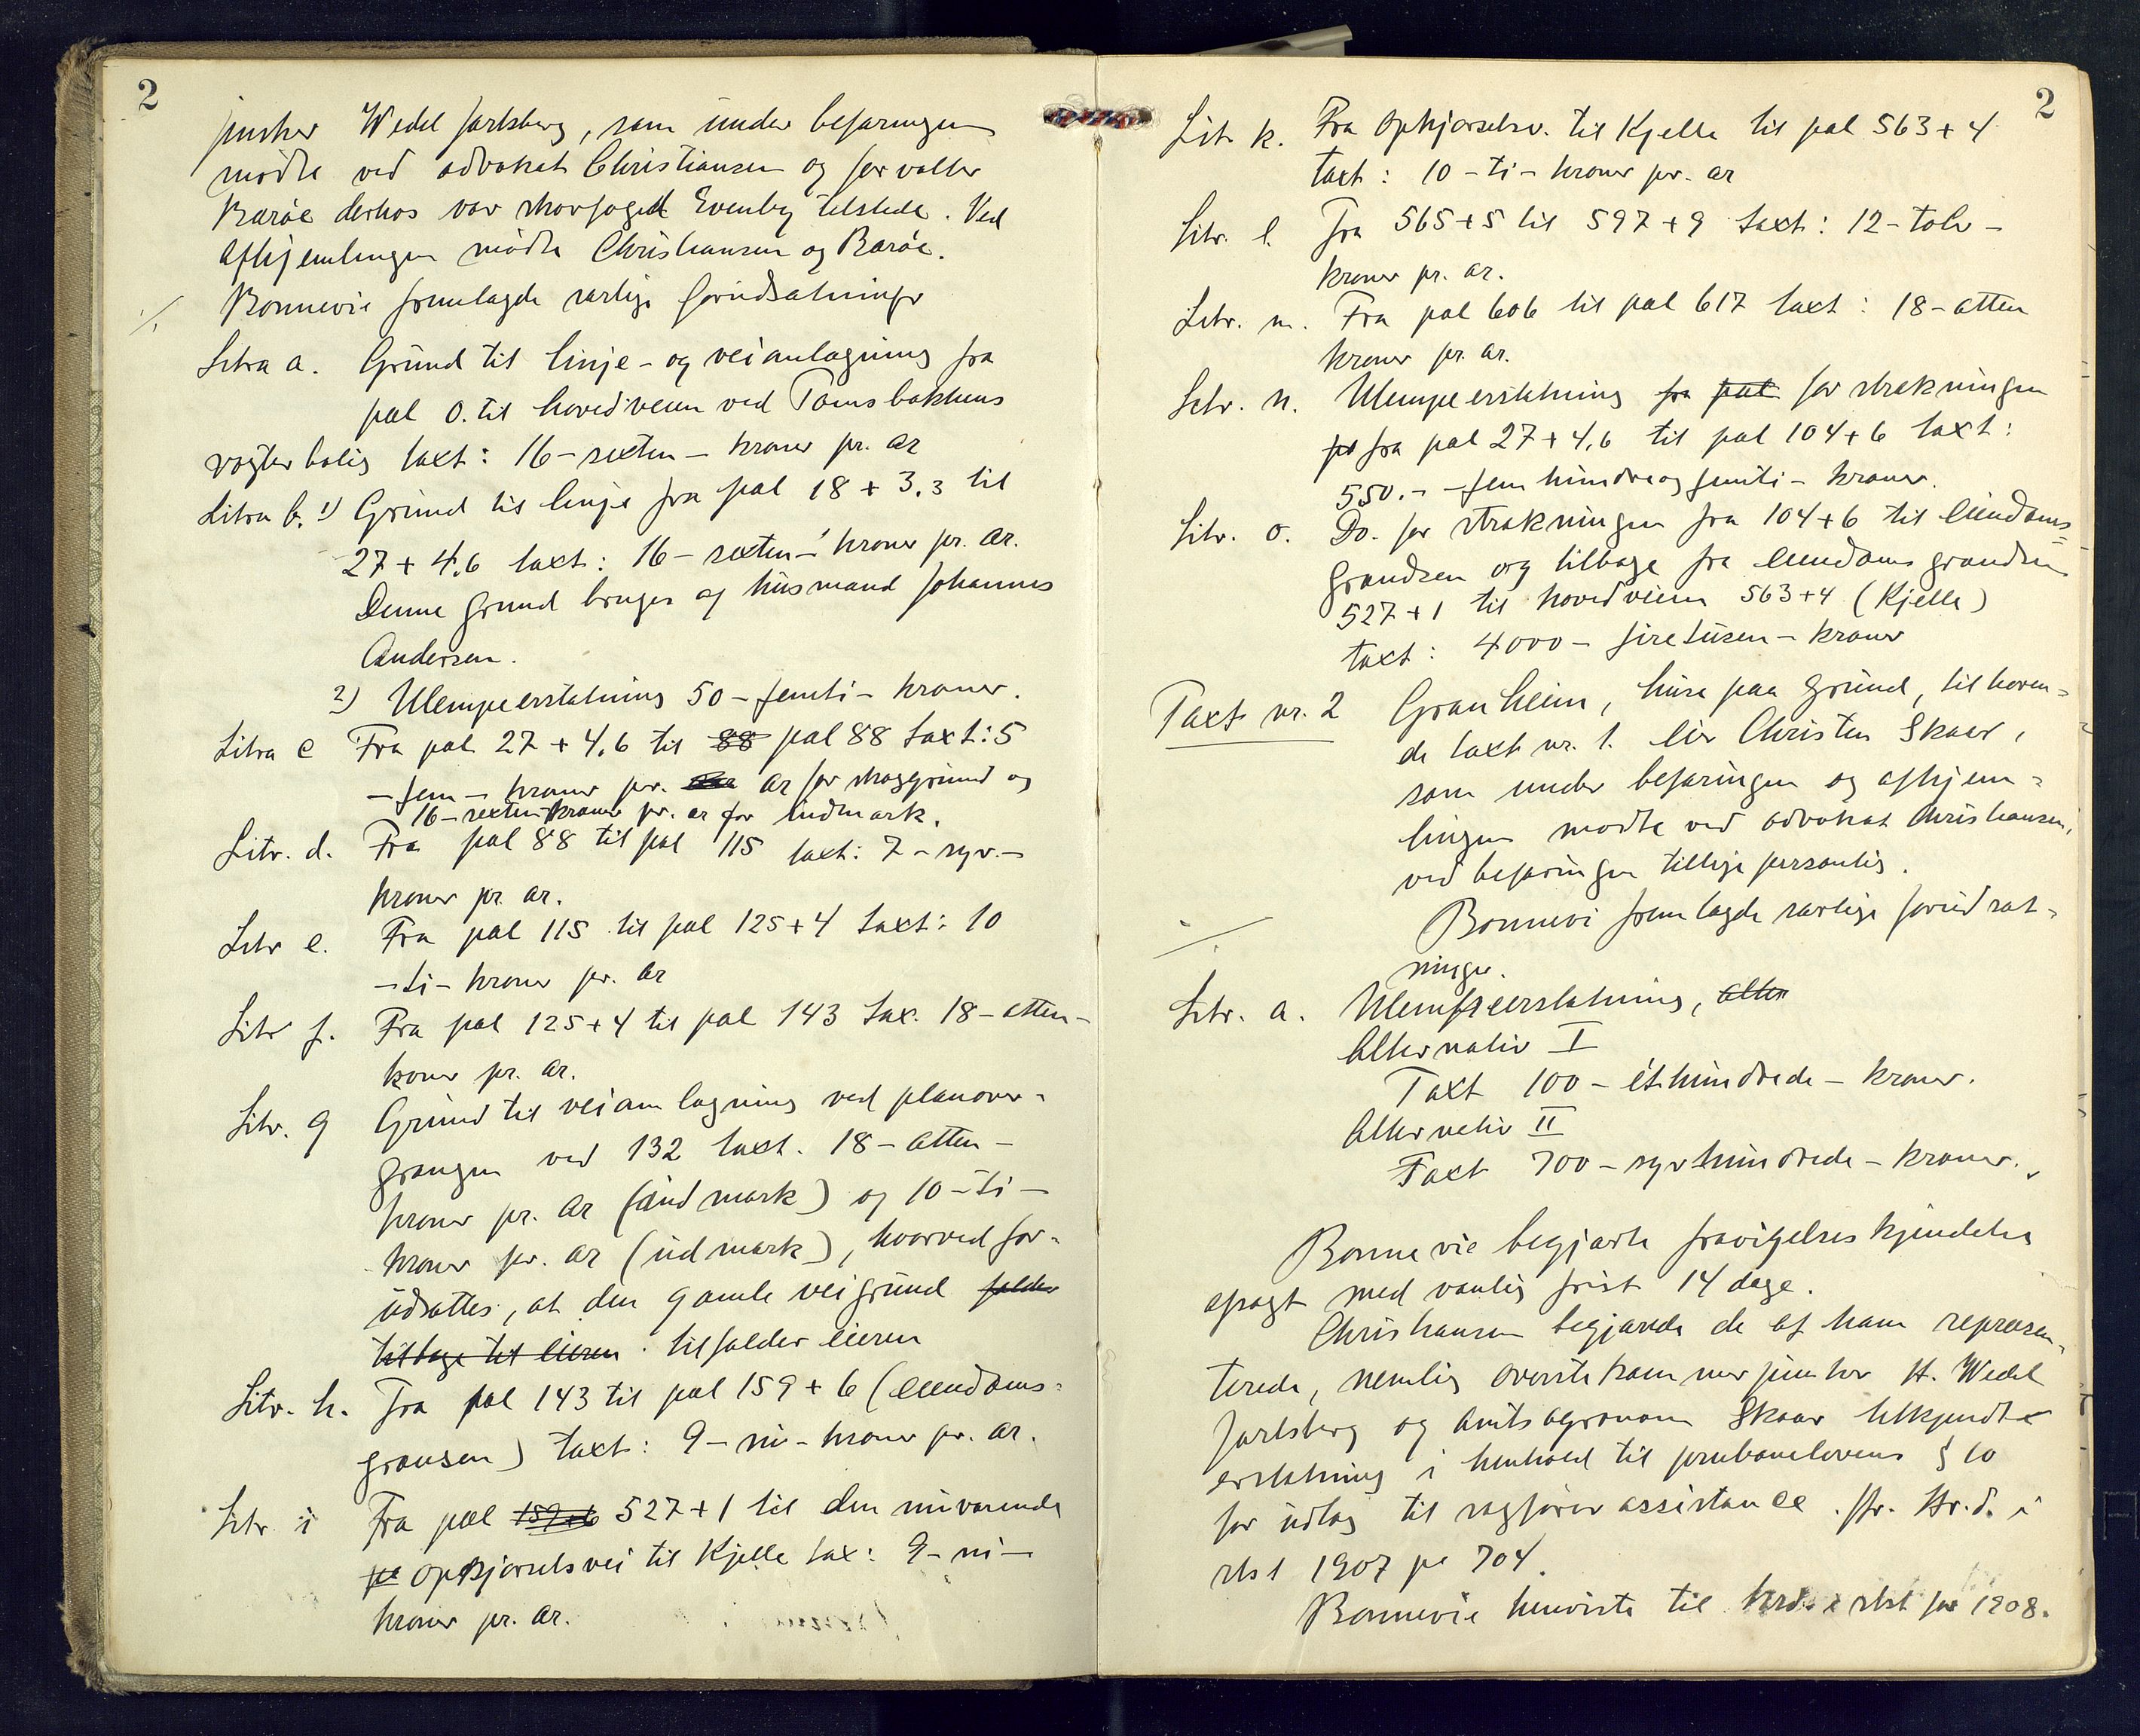 2
junker Wedel Jarlsberg, som under befaringen
mødte ved advokat Christiansen og forvalter
Barøe derhos var skovfoged Evenby tilstede. Ved
afhjemlingen mødte Christiansen og Barøe.
Bonnevie fremlagde særlige forudsætninger
Litra a. Grund til linje- og veianlægning fra
pæl 0. til hovedveien ved Tomsbakkens
vogterbolig taxt: 16 - sexten - kroner pr. ar
Litra b. 1) Grund til linje fra pæl 18 + 3.3 til
27 + 4.6 taxt: 16 - sexten - kroner pr. ar.
Denne grund bruges af husmand Johannes
Andersen.
2) Ulempeerstatning 50 - femti - kroner.
Litra c Fra pæl 27 + 4.6 til 88 pæl 88 taxt: 5
- fem - kroner pr. ar for skoggrund og
16 - sexten - kroner pr. ar for indmark.
Litr. d. Fra pæl 88 til pæl 115 taxt: 7 - syv. -
kroner pr. ar.
Litr e. Fra pæl 115 til pæl 125 + 4 taxt: 10
- ti - kroner pr. ar
Litr f. Fra pæl 125 + 4 til pæl 143 tax. 18 - atten -
kroner pr. ar.
Litr. g Grund til veianlægning ved planover-
gangen ved 132 taxt. 18 - atten -
kroner pr. ar (indmark) og 10 - ti -
kroner pr. ar (udmark), hvorved for-
udsættes, at den gamle veigrund falder
tilbage til eieren tilfalder eieren
Litr. h. Fra pæl 143 til pæl 159 + 6 (eiendoms-
grænsen) taxt: 9 - ni - kroner pr. ar.
Litr. i Fra pæl 159+6 527 + 1 til den nuværende
opkjørselsvei til Kjelle tax: 9 - ni -
kroner pr. ar.
2
Litr k. Fra opkjørselsv. til Kjelle til pæl 563 + 4
taxt: 10 - ti - kroner pr. ar
Litr. l. Fra 565 + 5 til 597 + 9 taxt: 12 - tolv -
kroner pr. ar.
Litr. m. Fra pæl 606 til pæl 617 taxt: 18 - atten
kroner pr. ar.
Litr. n. Ulempeerstatning fra pæl for strækningen
fra pæl 27 + 4.6 til pæl 104 + 6 taxt:
550. - femhundreogfemti - kroner.
Litr. o. Do. for strækningen fra 104 + 6 til eiendoms-
grændsen og tilbage fra eiendomsgrændsen
527 + 1 til hovedveien 563 + 4 (Kjelle)
taxt: 4000 - firetusen - kroner
Taxt nr. 2 Granheim, huse paa grund, tilhøren-
de taxt nr. 1. Eier Christen Skaar,
som under befaringen og afhjem-
lingen mødte ved advokat Christiansen,
ved befaringen tillige personlig.
Bonnevi fremlagde særlige forudsæt-
ninger.
Litr. a. Ulempeerstatning, alter
Alternativ I
Taxt 100 - ethundrede - kroner.
Alternativ II
Taxt 700 - syvhundrede - kroner.
Bonnevie begjærte fravigelseskjendelse
afsagt med vanlig frist 14 dage.
Christiansen begjærede de af ham repræsen-
terede, nemlig overstekammerjunker H. Wedel
Jarlsberg og amtsagronom Skaar tilkjendt
erstatning i henhold til jernbanelovens § 10
for udlæg til sagførerassistance. Jfr. Hr.d. i
rtst 1907 pe 704.
Bonnevie henviste til hrd. i rtst for 1908.